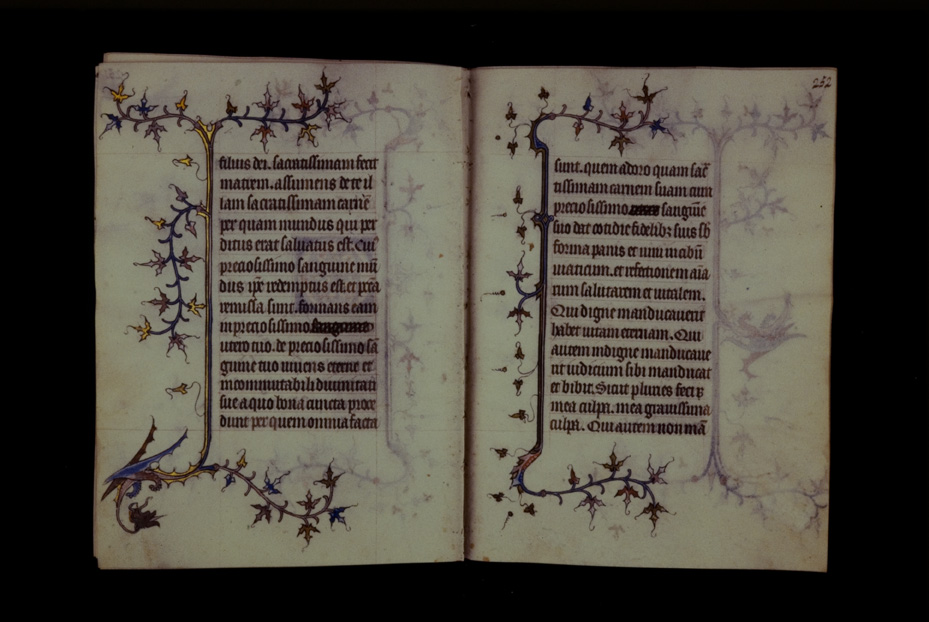 filius dei. sacratissimam fecit
matrem. assumens de te il
lam sacratissimam carnē
per quam mundus qui per
ditus erat saluatus est. Cuiꝰ
preciosissimo sanguine mū
dus ip̄e redemptus est. et pc̄ca
remissa sunt. formans eam
in preciosissimo
utero tuo. de preciosissimo sā
guine tuo uiuens eterne et
incommutabili diuinitati
sue a quo bona cuncta proce
dunt per quem omnia facta
252
sunt. quem adoro quam sac̄
tissimam carnem suam cum
preciosissimo sanguīe
suo dat cotidie fidelibꝫ suis sb̄
forma panis et uini in cibū
uiaticum. et refectionem aīa
rum salutarem et uitalem.
Qui digne manducauerit
habet uitam eternam. Qui
autem indigne manducaue
rit iudicium sibi manducat
et bibit. Sicut pluries feci ꝑ
mea culpa. mea grauissima
culpa. Qui autem non mā